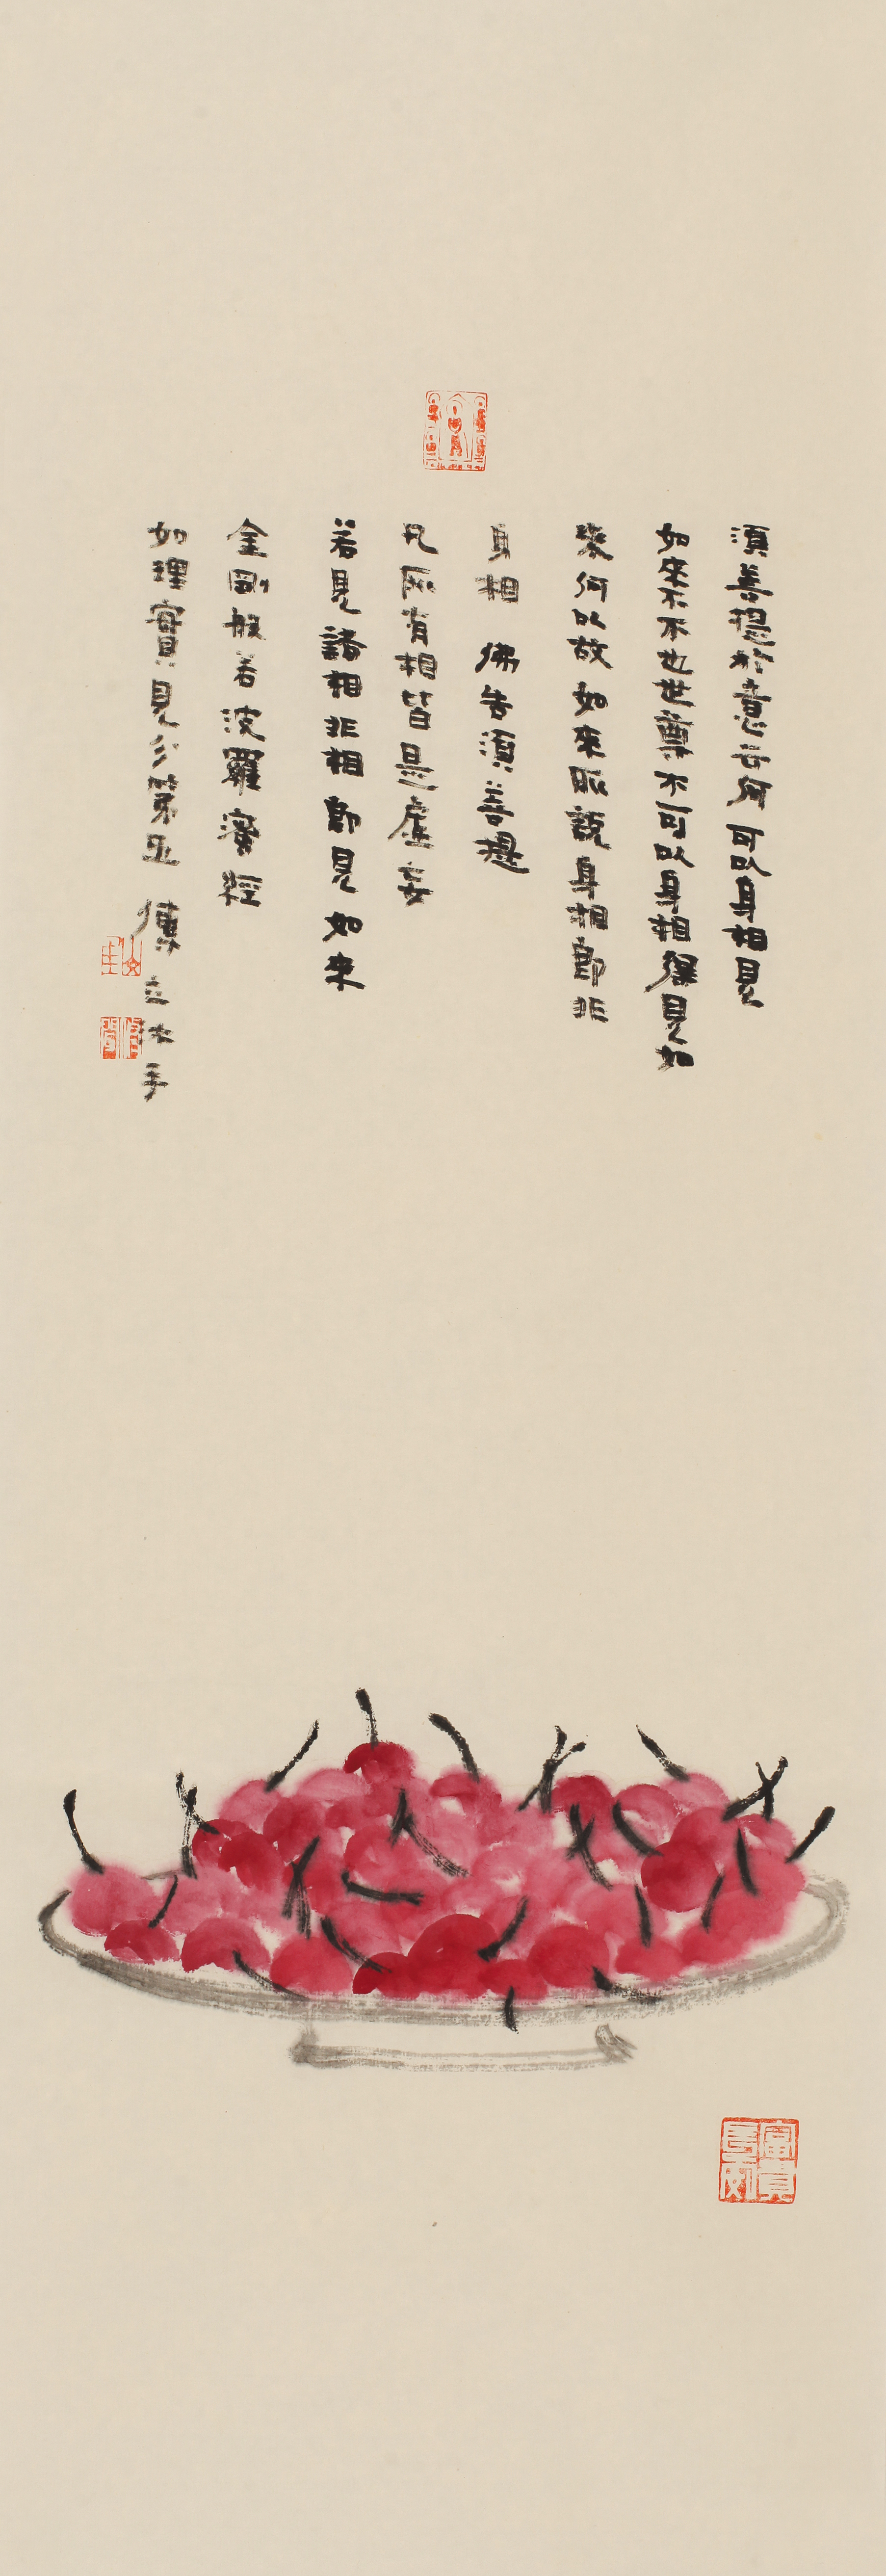 須菩提於意云何可以身相見
如來不不也世尊不可以身相得見如
來何以故如來所說身相即非
身相 佛告須菩提
凡所有相皆是虛妄
若見諸相非相即見如來
金剛般若波羅蜜經
如理實見分第五 傳立 手
富貴